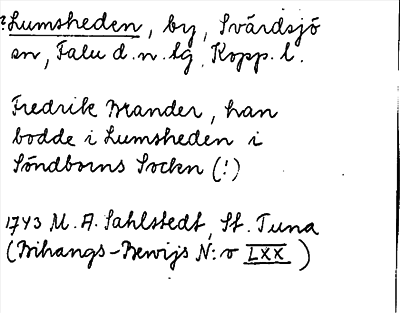 ?Lumsheden, by, Svärdsjö
sn, Falu d. n. lg. Kopp. l.
Fredrik Brander, han
bodde i Lumsheden i
Söndborns Sockn (!)
1743 M. A. Sahlstedt, St. Tuna
(Bihangs-Bewijs N:o LXX)